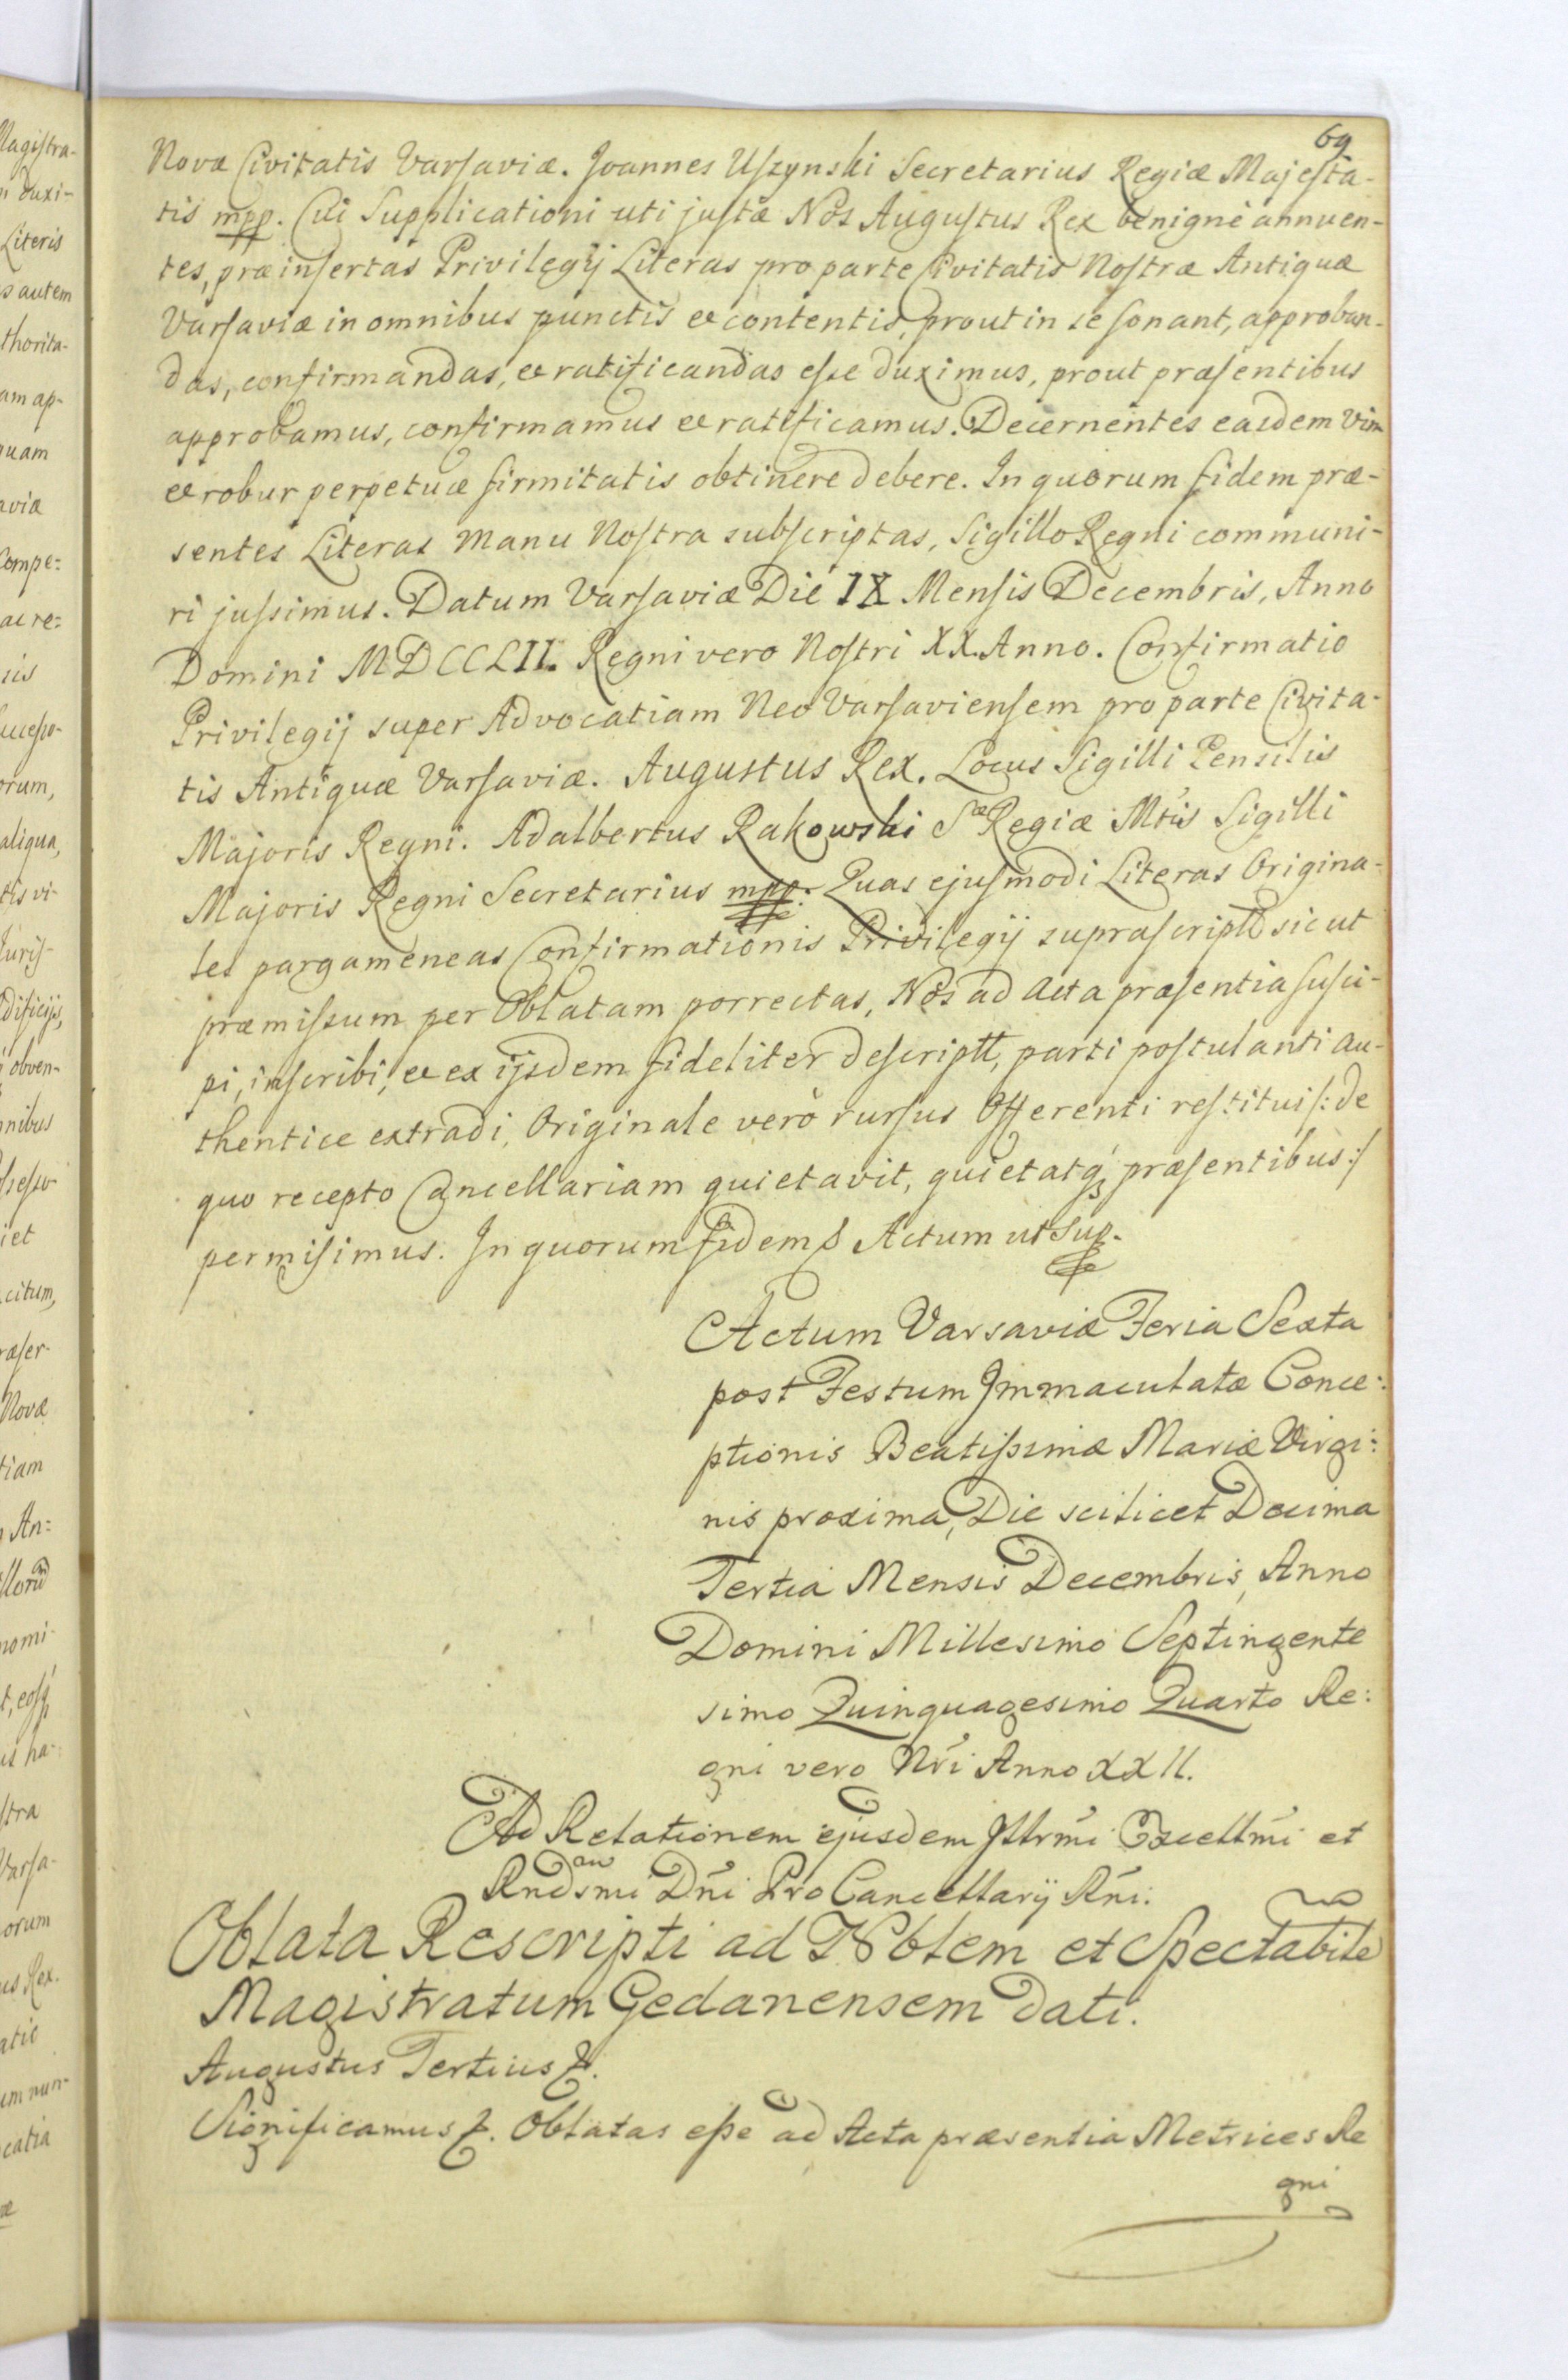 69
Novæ Civitatis Varsaviæ. Joannes Uszynski Secretarius Regiæ Majesta-
tis mpp. Cui Supplicationi uti justæ Nos Augustus Rex benignè annuen-
tes, præinsertas Privilegij Literas pro parte Civitatis Nostræ Antiquæ
Varsaviæ in omnibus punctis et contentis, prout in se sonant, approban-
das, confirmandas, et ratificandas esse duximus, prout præsentibus
approbamus, confirmamus et ratificamus. Decernentes easdem vim
et robur perpetuæ firmitatis obtinere debere. In quorum fidem præ-
sentes Literas Manu Nostra subscriptas, Sigillo Regni communi-
ri jussimus. Datum Varsaviæ Die IX Mensis Decembris, Anno
Domini MDCCLII. Regni vero Nostri XX. Anno. Confirmatio
Privilegij super Advocatiam Neo Varsaviensem pro parte Civita-
tis Antiquæ Varsaviæ. Augustus Rex. Locus Sigilli Pensilis
Majoris Regni. Adalbertus Rakowski Sæ Regiæ Mtis Sigilli
Majoris Regni Secretarius mpp. Quas ejusmodi Literas Origina-
les pargameneas Confirmationis Privilegij suprascriptt sicut
præmissum per Oblatam porrectas, Nos ad Acta præsentia susci-
pi, inscribi, et ex ijsdem fideliter descriptt, parti postulanti au-
thentice extradi, Originale verò rursus Offerenti restitui /: de
quo recepto Cancellariam quietavit, quietatq; præsentibus :/
permisimus. In quorum fidem & Actum ut sup.
Actum Varsaviæ Feria Sexta
post Festum Immaculatæ Conce:
ptionis Beatissimæ Mariæ Virgi:
nis proxima, Die scilicet Decima
Tertia Mensis Decembris, Anno
Domini Millesimo Septingente
simo Quinquagesimo Quarto Re:
gni vero Nri Anno XXII.
Ad Relationem ejusdem Illrmi Excellmi et
Rndsmi Dni Pro Cancellarij Rni.
Oblata Rescripti ad Noblem et Spectabile
Magistratum Gedanensem dati.
Augustus Tertius &.
Significamus &. Oblatas esse ad Acta præsentia Metrices Re
gni